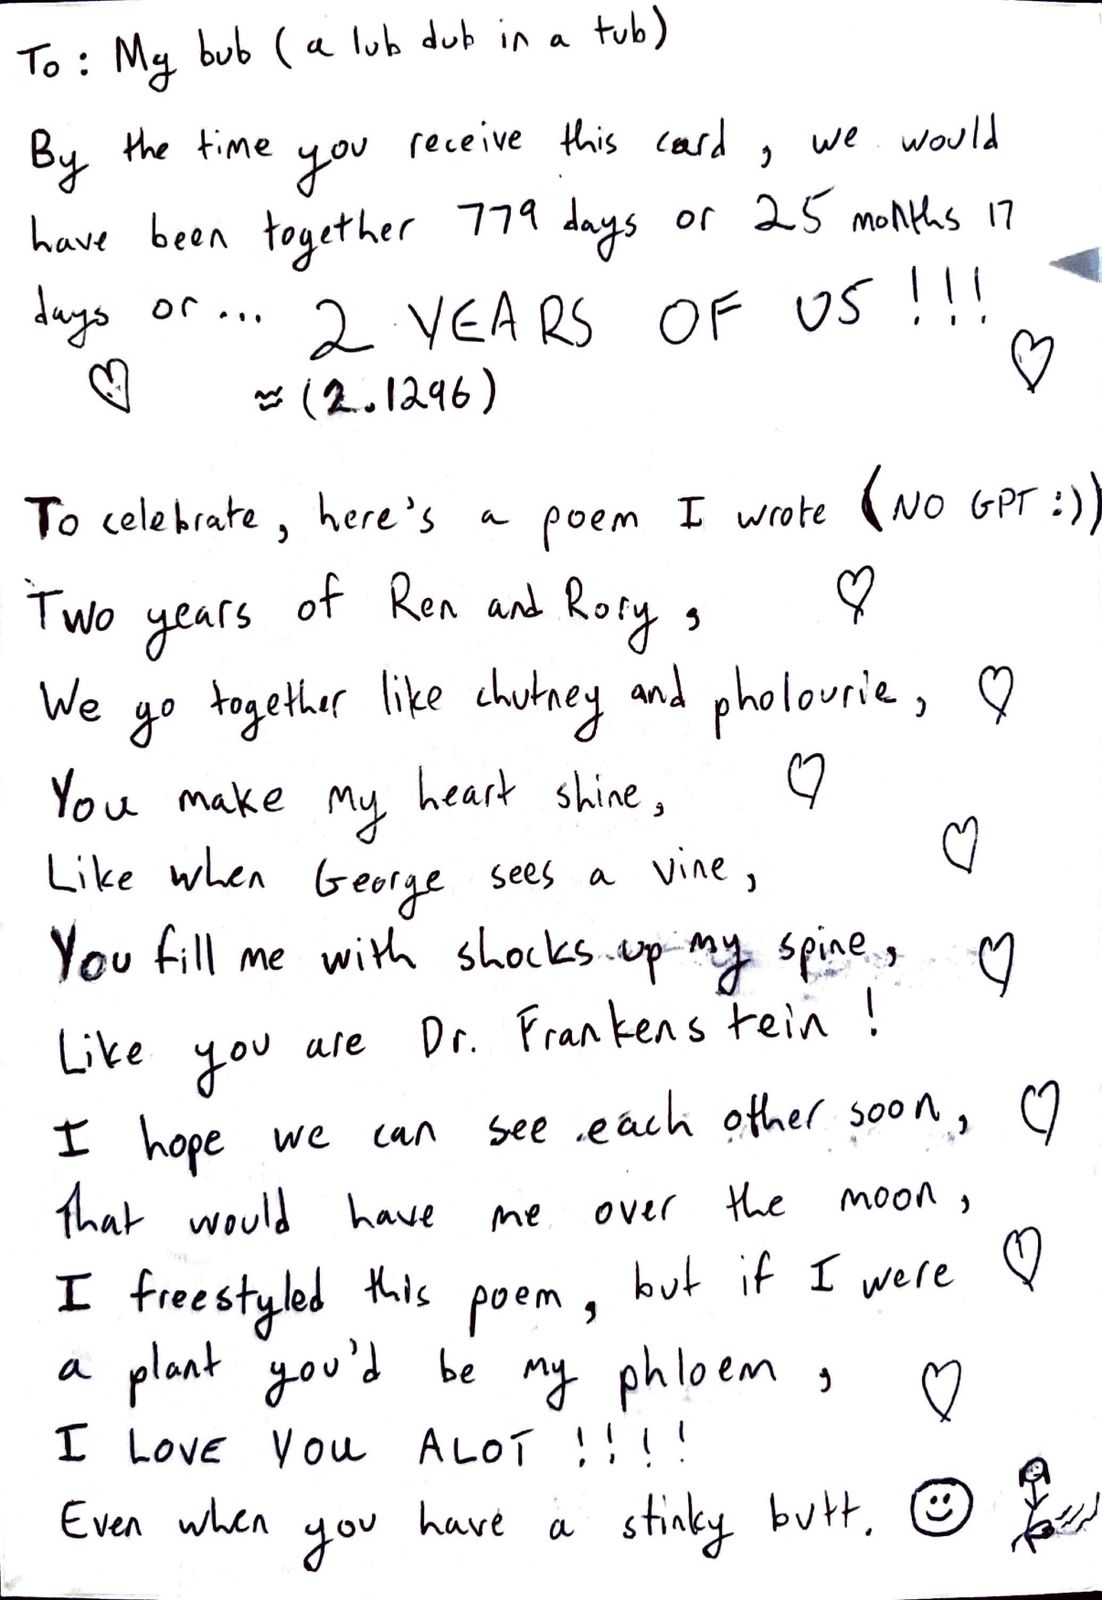 To: My bub (a lub dub in a tub)
By the time you receive this card, we would
have been together 779 days or 25 months 17
days or... 2 YEARS OF US!!!
≈(2.1296)
To celebrate, here's a poem I wrote (NO GPT :))
Two years of Ren and Rory,
We go together like chutney and pholourie,
You make my heart shine,
Like when George sees a vine,
You fill me with shocks up my spine,
Like you are Dr. Frankenstein!
I hope we can see each other soon,
That would have me over the moon,
I freestyled this poem, but if I were
a plant you'd be my phloem,
I LOVE YOU ALOT!!!!
Even when you have a stinky butt.